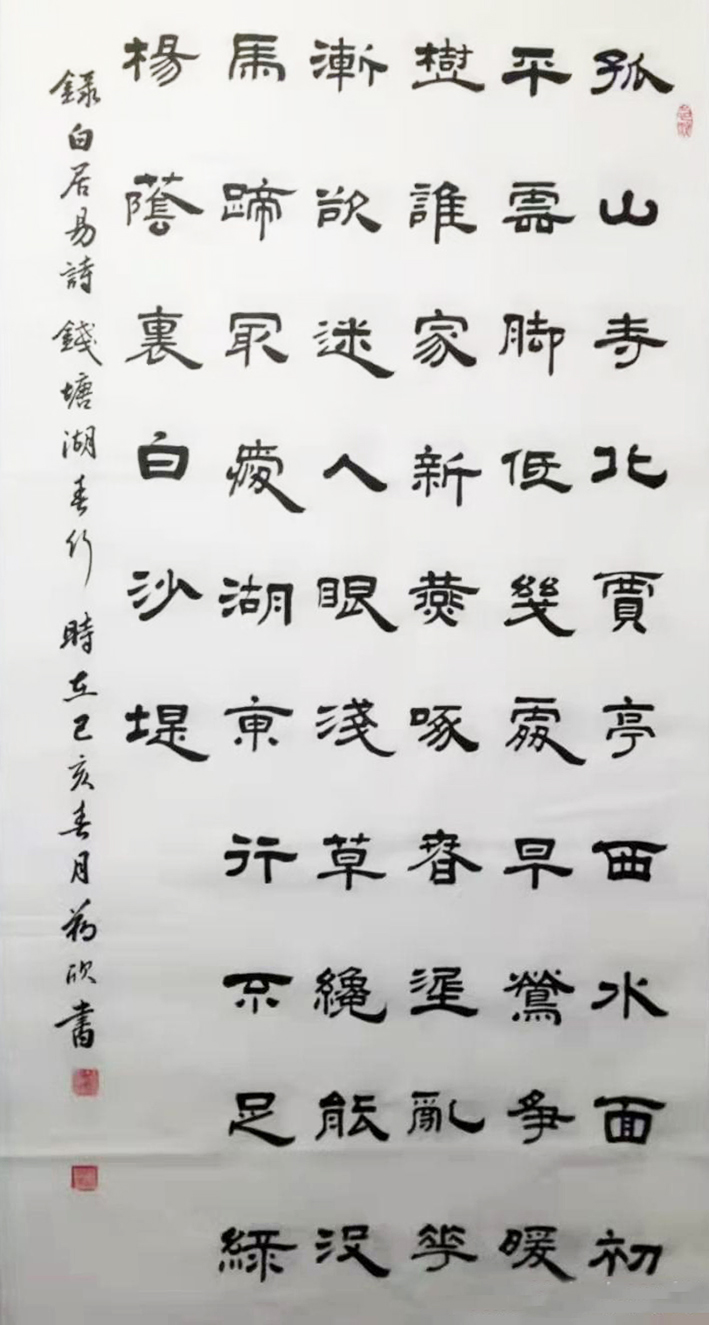 孤山寺北賈亭西水面初
平雲脚低幾處早鶯爭暖
樹誰家新燕啄春泥亂花
漸欲迷人眼淺草纔能没
馬蹄冣愛湖東行不足綠
楊蔭裏白沙堤
錄白居易詩 錢塘湖春行 時在己亥春月 欣書